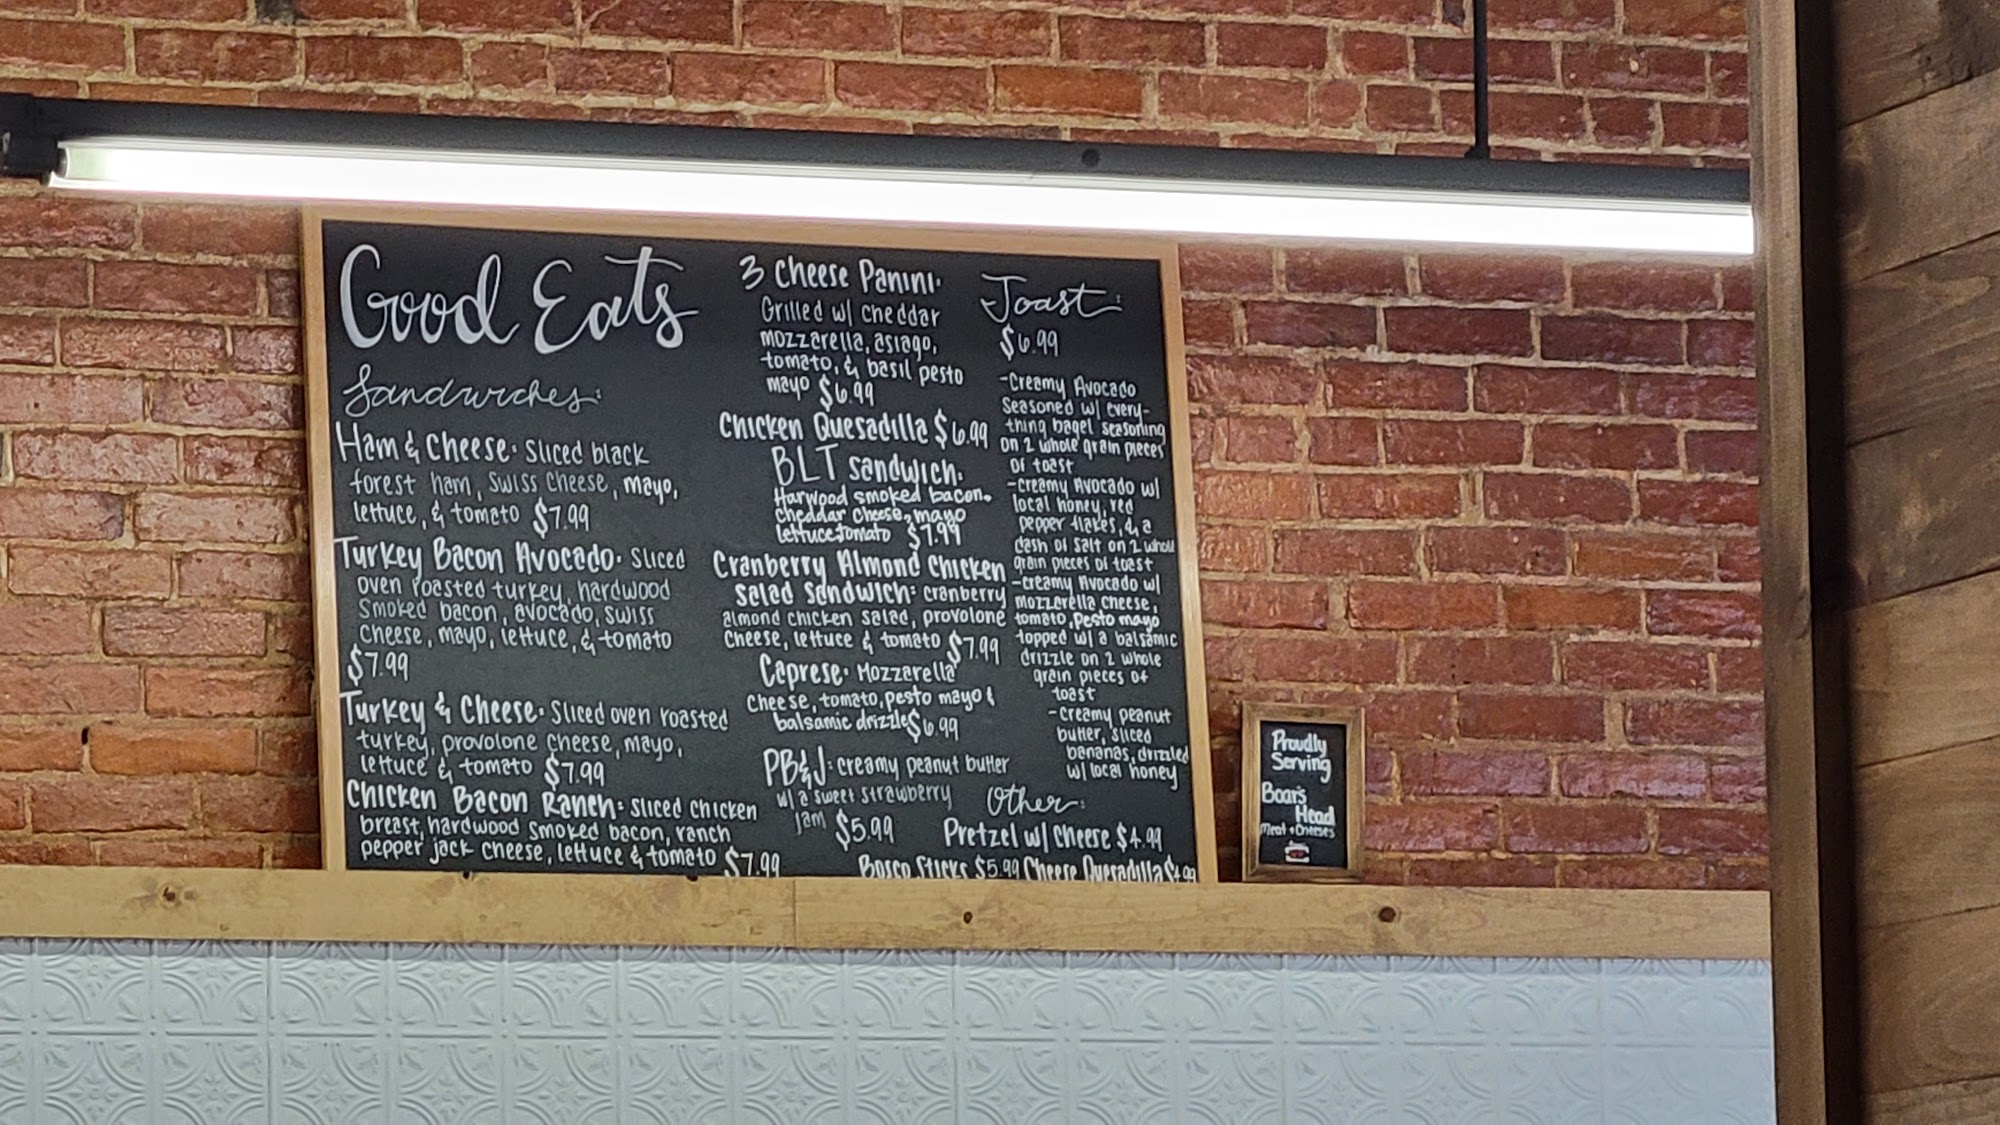 Good Eats
Sandwiches:
Ham & Cheese: Sliced black
forest ham, swiss cheese, mayo,
lettuce, & tomato $7.99
Turkey Bacon Avocado: Sliced
oven roasted turkey, hardwood
smoked bacon, avocado, swiss
cheese, mayo, lettuce, & tomato
$7.99
Turkey & Cheese: Sliced oven roasted
turkey, provolone cheese, mayo,
lettuce & tomato $7.99
Chicken Bacon Ranch: sliced chicken
breast, hardwood smoked bacon, ranch
pepper jack cheese, lettuce & tomato $7.99
3 Cheese Panini:
Grilled w/ cheddar
mozzarella, asiago,
tomato, & basil pesto
mayo $6.99
Chicken Quesadilla $6.99
BLT sandwich:
Harwood smoked bacon,
cheddar cheese, mayo
lettuce, tomato $7.99
Cranberry Almond Chicken
Salad Sandwich: cranberry
almond chicken salad, provolone
cheese, lettuce & tomato $7.99
Caprese: Mozzarella
cheese, tomato, pesto mayo &
balsamic drizzle $6.99
PB&J: creamy peanut butter
w/ a sweet strawberry
jam $5.99
Toast:
$6.99
-Creamy Avocado
Seasoned w/ every-
thing bagel seasoning
on 2 whole grain pieces
of toast
-creamy Avocado w/
local honey, red
pepper flakes, & a
dash of salt on 2 whole
grain pieces of toast
-creamy Avocado w/
mozzarella cheese,
tomato, pesto mayo
topped w/ a balsamic
drizzle on 2 whole
grain pieces of
toast
-creamy peanut
butter, sliced
bananas, drizzled
w/ local honey
Other:
Pretzel w/ Cheese $4.99
Bosco Sticks $5.99 Cheese Quesadilla $4.99
Proudly
Serving
Boar's
Head
Meat + Cheeses